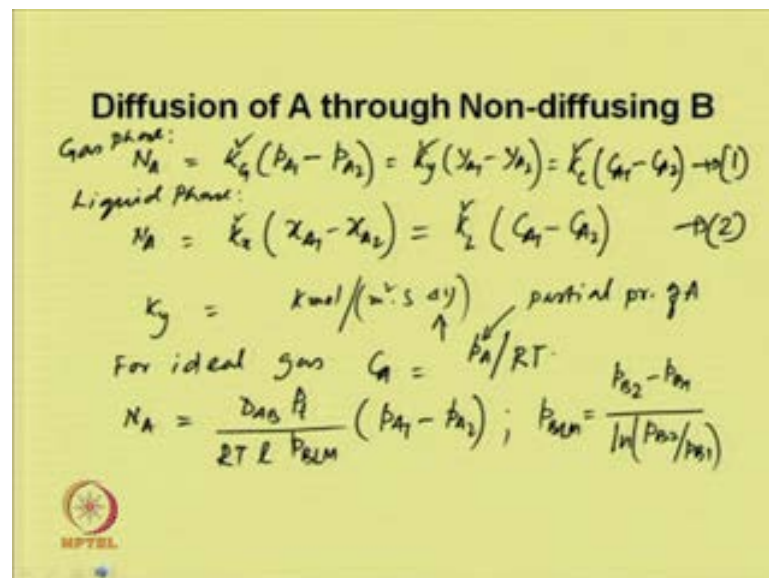 Diffusion of A through Non-diffusing B
Gas phase:
N_A = k_G (p_A1 - p_A2) = k_y (y_A1 - y_A2) = k_c (C_A1 - C_A2) → (1)
Liquid Phase:
N_A = k_x (x_A1 - x_A2) = k_L (C_A1 - C_A2) → (2)
k_y = kmol/(m². s Δy) partial pr. of A
For ideal gas C_A = p_A/RT.
N_A = D_AB P_t / RT l p_BLM (p_A1 - p_A2) ; p_BLM = p_B2 - p_B1 / ln(p_B2/p_B1)
NPTEL